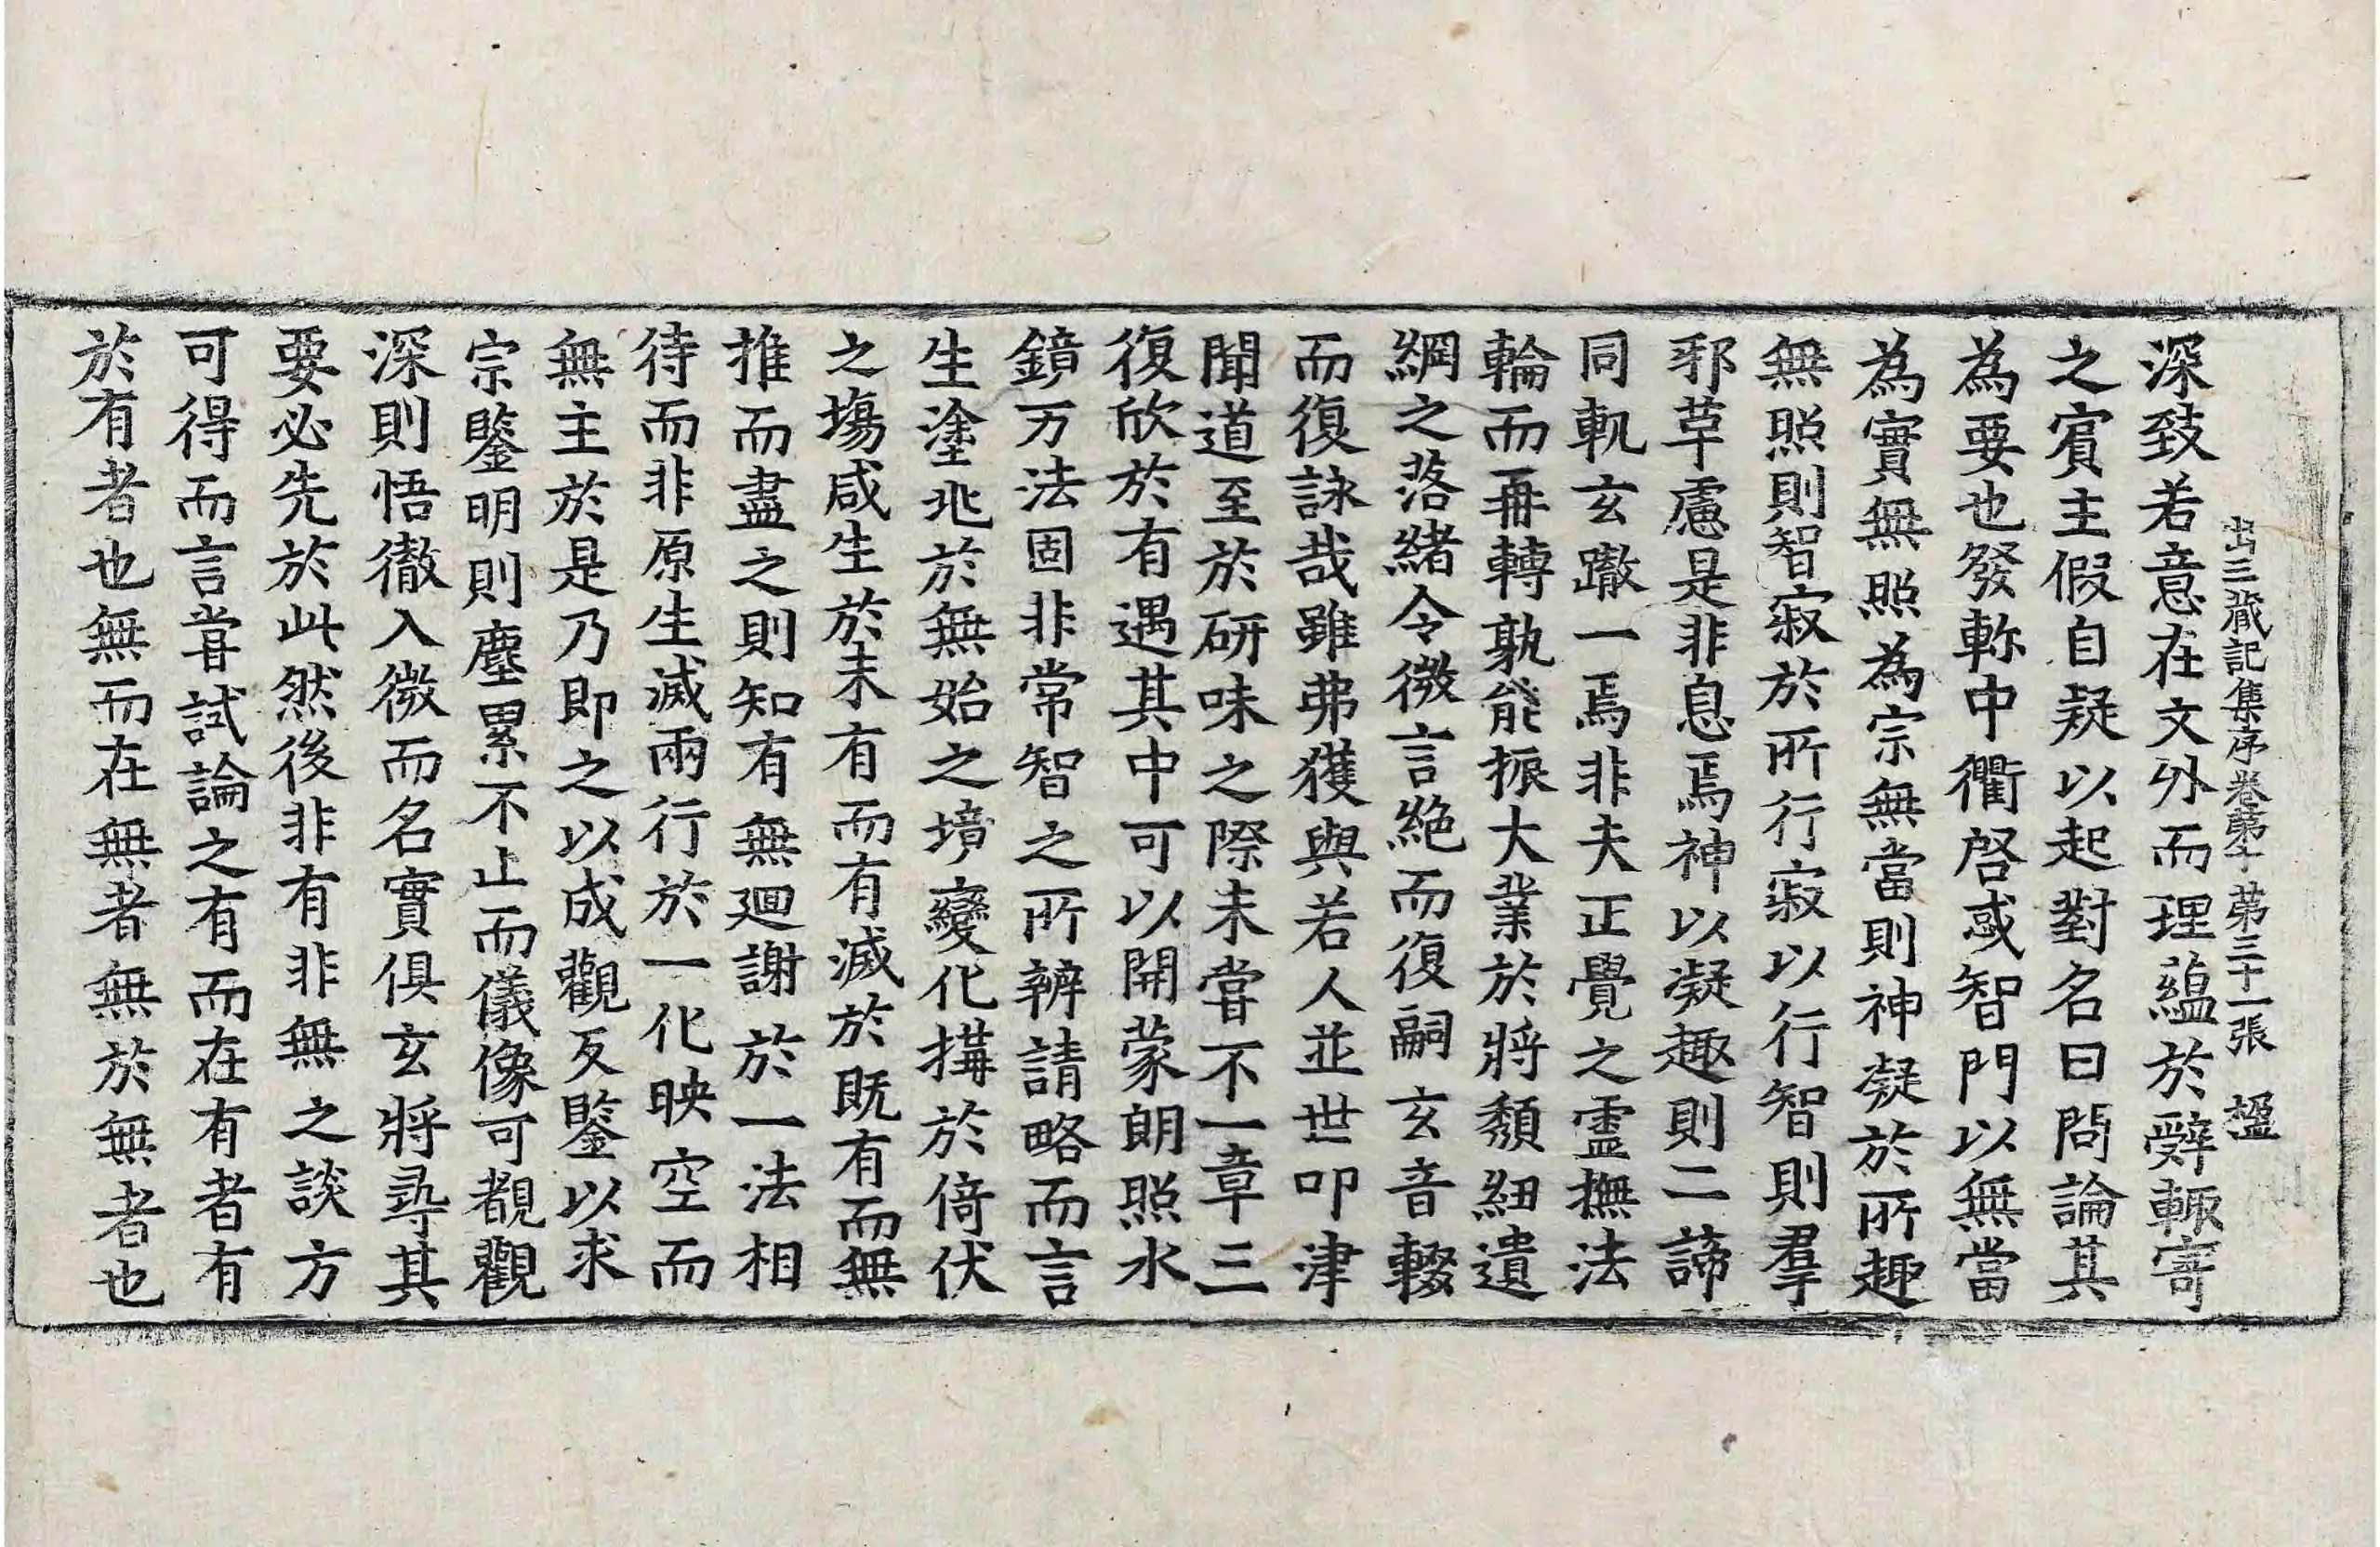 出三藏記集序卷第十 第三十一張 榲
深致若意在文外而理蘊於辭輙寄
之賔主假自疑以起對名曰問論其
為要也發軫中衢啓惑智門以無當
為實無照為宗無當則神凝於所趣
無照則智寂於所行寂以行智則羣
邪革慮是非息焉神以凝趣則二諦
同軌玄轍一焉非夫正覺之靈撫法
輪而再轉孰能振大業於將頹紐遺
綱之落緒令微言絶而復嗣玄音輟
而復詠哉雖弗獲與若人並世叩津
聞道至於研味之際未嘗不一章三
復欣於有遇其中可以開蒙朗照水
鏡万法固非常智之所辨請略而言
生塗兆於無始之境變化搆於倚伏
之場咸生於未有而有滅於既有而無
推而盡之則知有無廻謝於一法相
待而非原生滅兩行於一化映空而
無主於是乃即之以成觀反鑒以求
宗鑒明則塵累不止而儀像可覩觀
深則悟徹入微而名實俱玄將尋其
要必先於此然後非有非無之談方
可得而言嘗試論之有而在有者有
於有者也無而在無者無於無者也